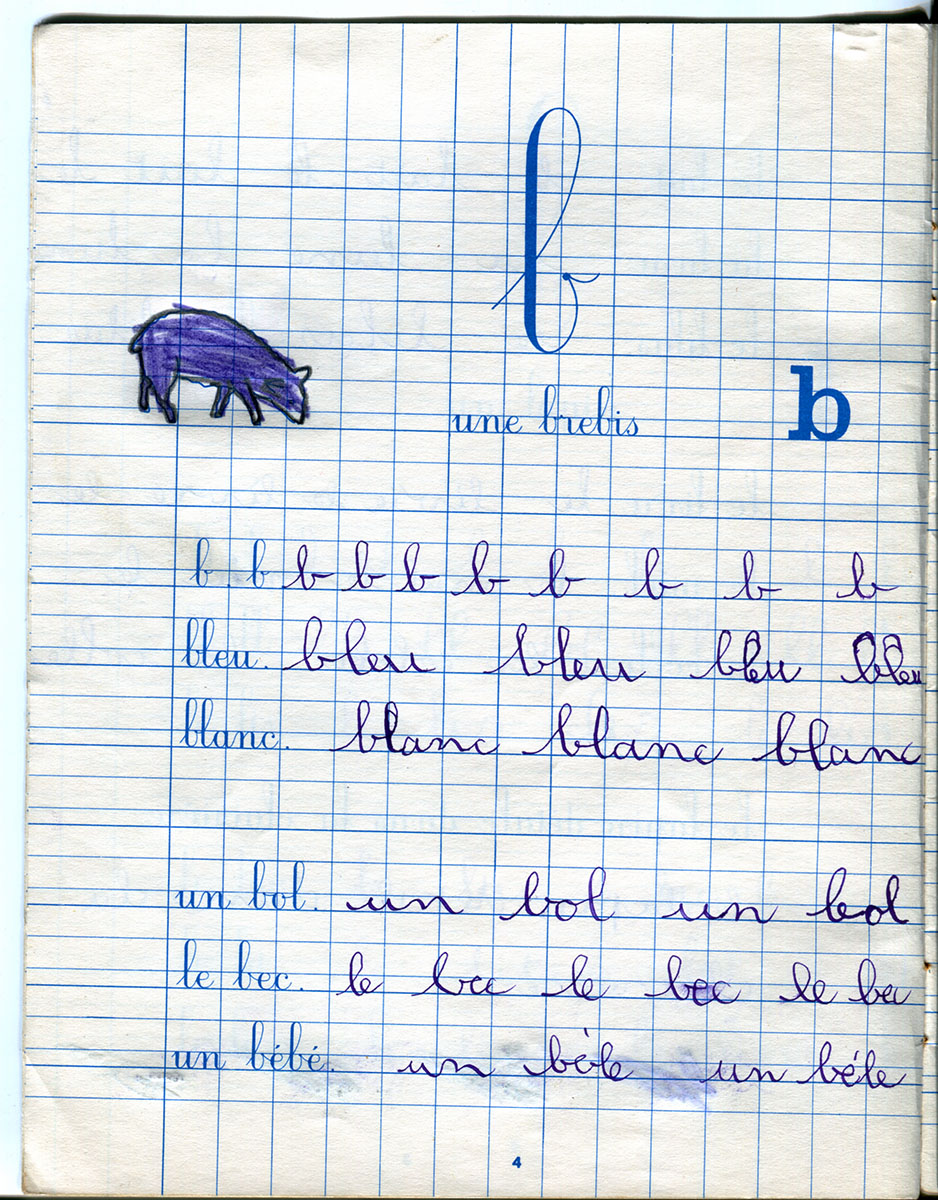 b
une brebis b
b b b b b b b b b b
bleu. bleu bleu bleu bleu
blanc. blanc blanc blanc
un bol. un bol un bol
le bec. le bec le bec le bec
un bébé. un béle un béle
4